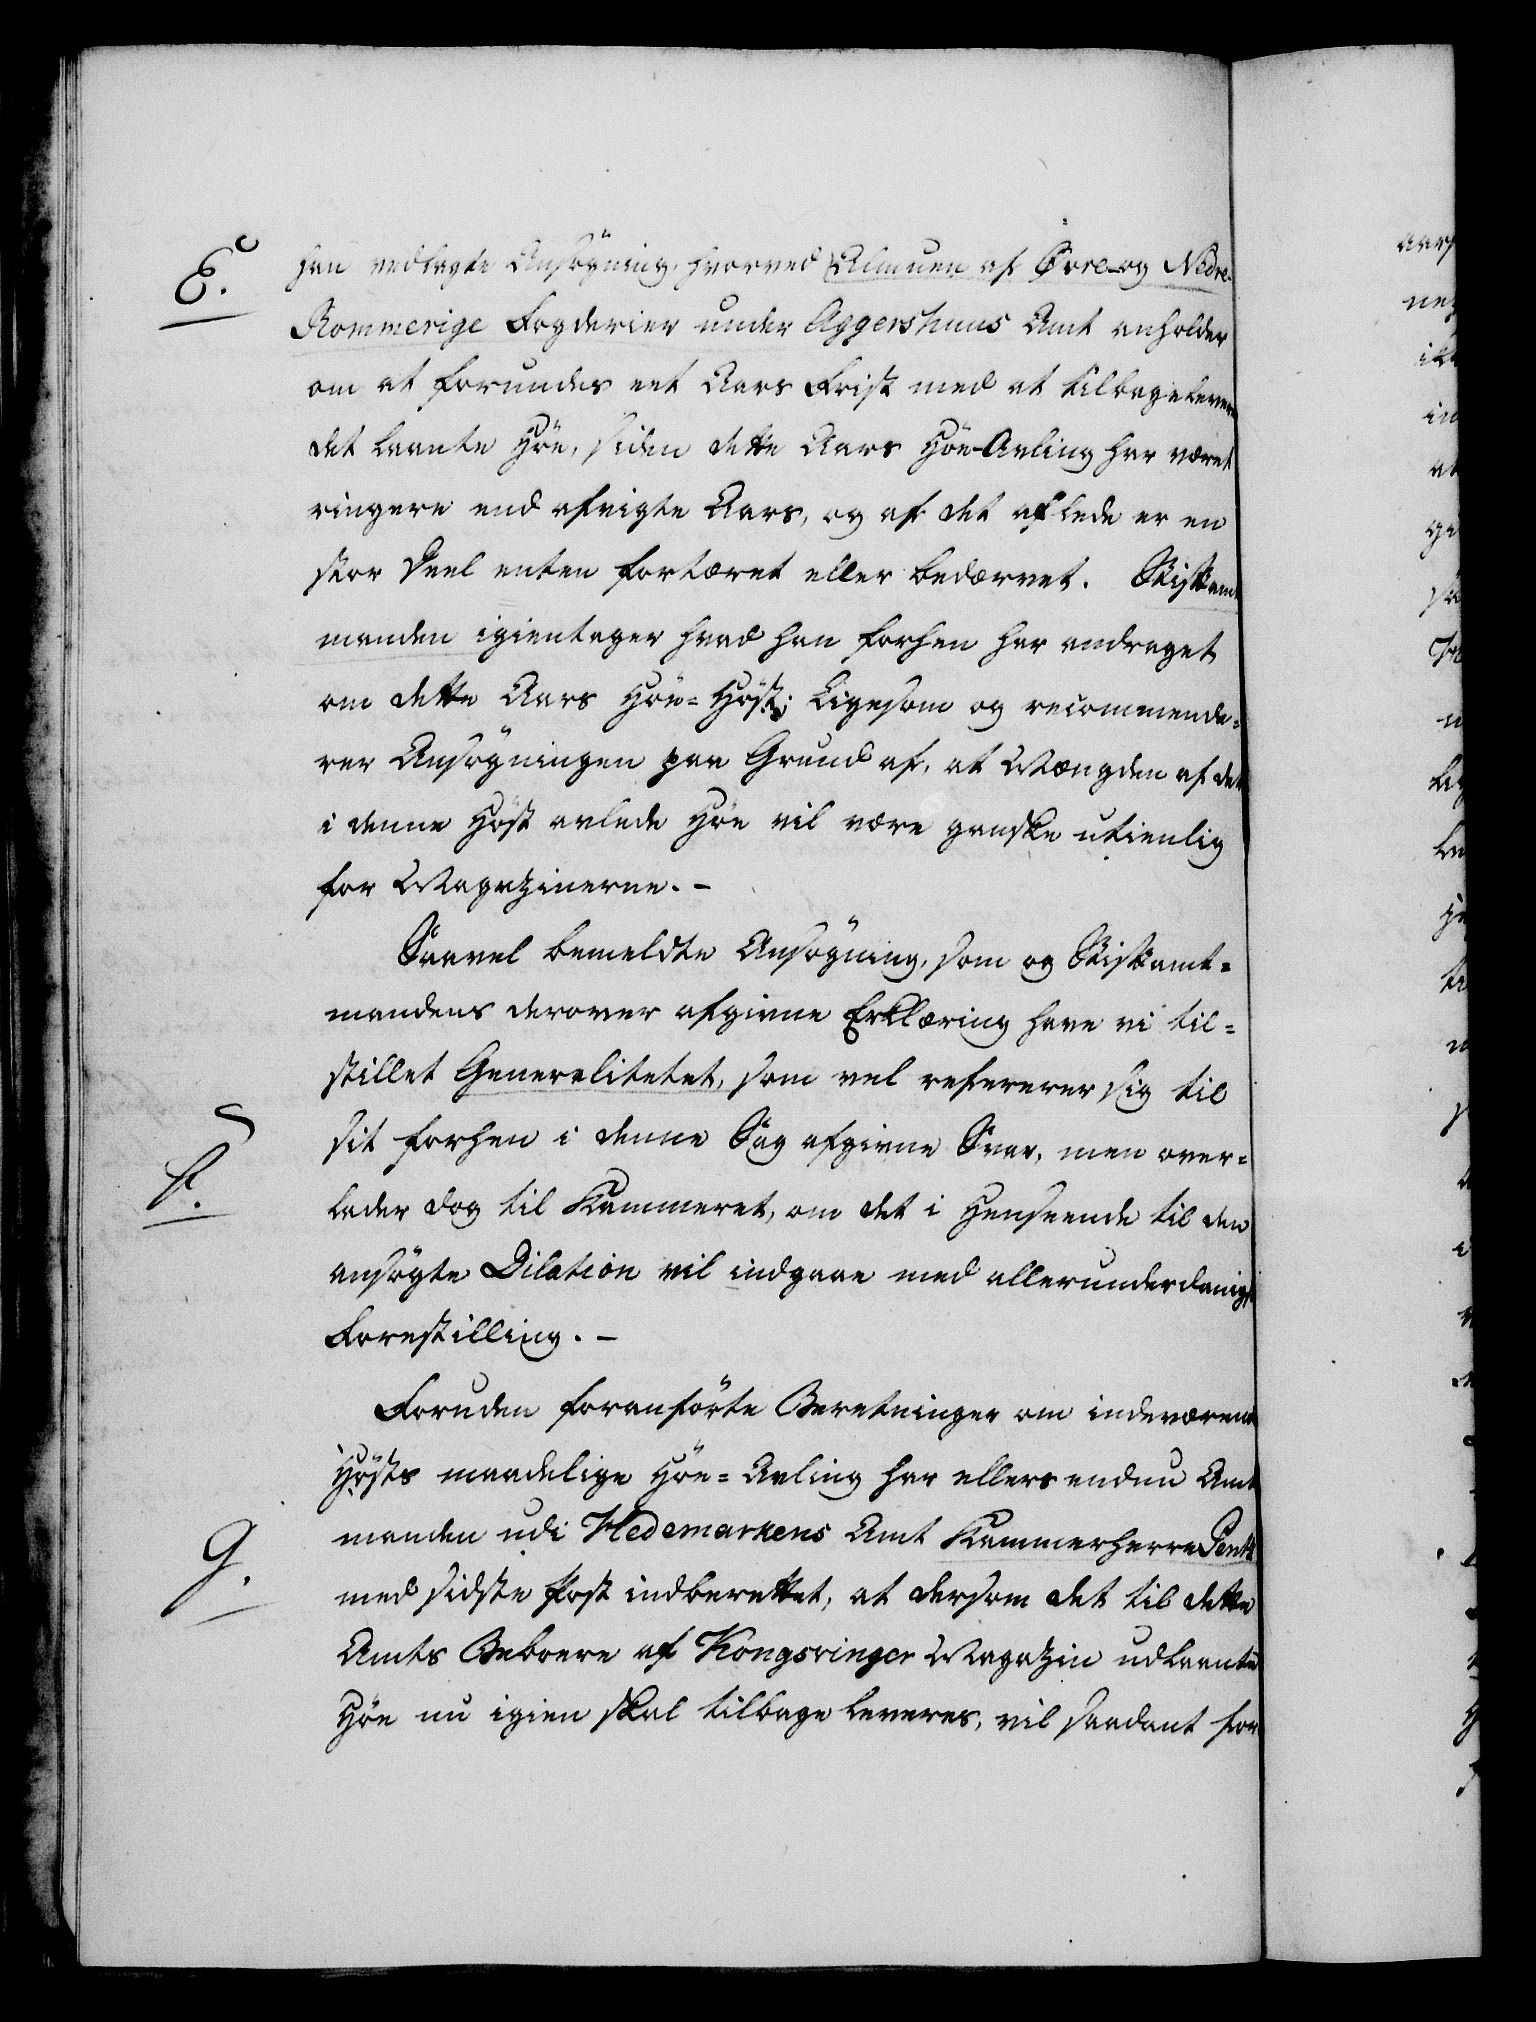 E.
han vedlagte Ansögning, hvorved Almuen af Øvre- og Nedre-
Rommerige Fogderier under Aggershuus Amt anholder
om at forundes eet Aars Frist med at tilbagelevere
det laante Höe, siden dette Aars Höe-Avling har været
ringere end afvigte Aars, og af det avlede er en
stor Deel enten fortæret eller bedærvet. Stiftamt
manden igientager hvad han forhen har andraget
om dette Aars Höe-Höst; Ligesom og recommende-
rer Ansögningen paa Grund af, at Mængden af det
i denne Höst avlede Höe vil være ganske utienlig
for Magazinerne. –
Saavel bemeldte Ansögning, som og Stiftamt-
mandens derover afgivne Erklæring have vi til-
stillet Generalitetet, som vel refererer sig til
F.
sit forhen i denne Sag afgivne Svar, men over-
lader dog til Kammeret, om det i Henseende til den
ansögte Dilation vil indgaae med allerunderdanigst
Forestilling. –
Foruden foranförte Beretninger om indeværende
Hösts maadelige Höe-Avling har ellers endnu Amt
G.
manden udi Hedemarkens Amt Kammerherre
med sidste Post indberettet, at dersom det til dette
Amts Beboere af Kongsvinger Magazin udlaante
Höe nu igien skal tilbage leveres, vil saadant for